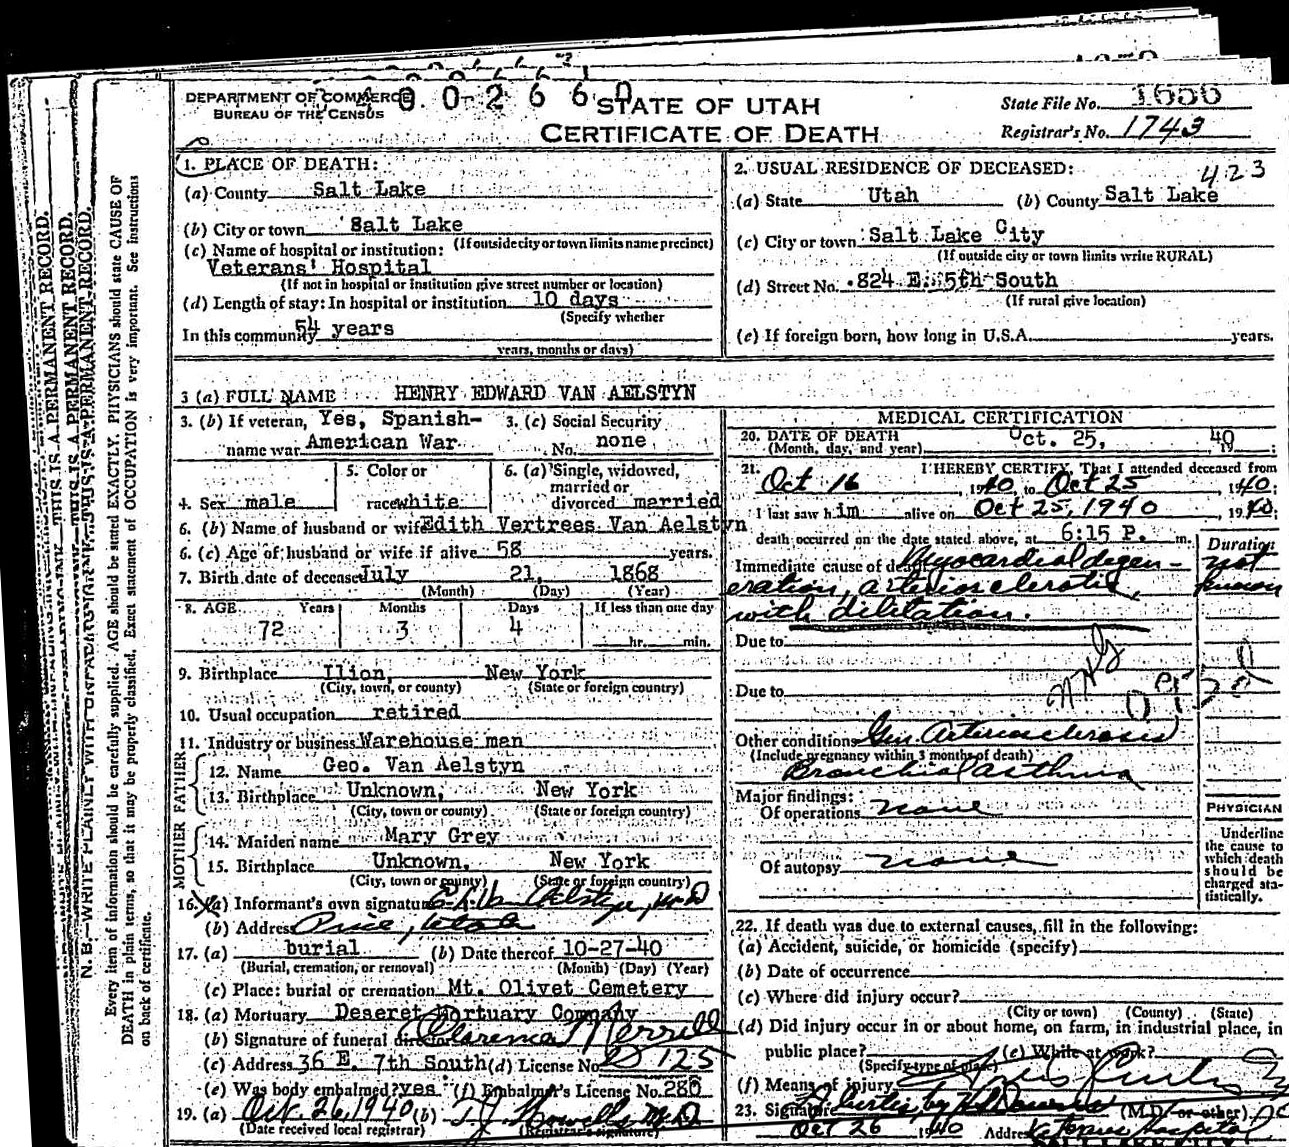 DEPARTMENT OF COMMERCE
BUREAU OF THE CENSUS
STATE OF UTAH
CERTIFICATE OF DEATH
State File No. 1656
Registrar's No. 1743
1. PLACE OF DEATH:
(a) County Salt Lake
(b) City or town Salt Lake
(If outside city or town limits name precinct)
(c) Name of hospital or institution:
Veterans' Hospital
(If not in hospital or institution give street number or location)
(d) Length of stay: In hospital or institution 10 days
(Specify whether
In this community 54 years
years, months or days)
2. USUAL RESIDENCE OF DECEASED:
423
(a) State Utah (b) County Salt Lake
(c) City or town Salt Lake City
(If outside city or town limits write RURAL)
(d) Street No. 824 E. 5th South
(If rural give location)
(e) If foreign born, how long in U.S.A. years.
3 (a) FULL NAME HENRY EDWARD VAN AELSTYN
3. (b) If veteran, Yes, Spanish-
name war American War
3. (c) Social Security
No. none
4. Sex male
5. Color or
race white
6. (a) Single, widowed,
married or
divorced married
6. (b) Name of husband or wife Edith Vertrees Van Aelstyn
6. (c) Age of husband or wife if alive 58 years.
7. Birth date of deceased July 21, 1868
(Month) (Day) (Year)
8. AGE Years Months Days If less than one day
72 3 4 hr. min.
9. Birthplace Ilion, New York
(City, town, or county) (State or foreign country)
10. Usual occupation retired
11. Industry or business Warehouse man
FATHER
12. Name Geo. Van Aelstyn
13. Birthplace Unknown, New York
(City, town or county) (State or foreign country)
MOTHER
14. Maiden name Mary Grey
15. Birthplace Unknown, New York
(City, town or county) (State or foreign country)
16. (a) Informant's own signature Aelstyn, M.D
(b) Address Price, Utah
17. (a) burial (b) Date thereof 10-27-40
(Burial, cremation, or removal) (Month) (Day) (Year)
(c) Place: burial or cremation Mt. Olivet Cemetery
18. (a) Mortuary Deseret Mortuary Company
(b) Signature of funeral director Clarence Merrill
(c) Address 36 E. 7th South (d) License No. D 125
(e) Was body embalmed? yes (f) Embalmer's License No. 286
19. (a) Oct. 26, 1940 (b) T.J. Howells M.D
(Date received local registrar) (Registrar's signature)
MEDICAL CERTIFICATION
20. DATE OF DEATH Oct. 25, 1940
(Month, day, and year)
21. I HEREBY CERTIFY, That I attended deceased from
Oct 16, 1940 to Oct 25, 1940;
I last saw him alive on Oct 25, 1940, 1940;
death occurred on the date stated above, at 6:15 P. m.
Duration
Immediate cause of death Myocardial degen-
eration, arteriosclerotic,
with dilitation.
not
known
Due to
Due to
Other conditions Gen. Arteriosclerosis
(Include pregnancy within 3 months of death)
Bronchial asthma
Major findings:
Of operations none
Of autopsy none
PHYSICIAN
Underline
the cause to
which death
should be
charged sta-
tistically.
22. If death was due to external causes, fill in the following:
(a) Accident, suicide, or homicide (specify)
(b) Date of occurrence
(c) Where did injury occur?
(City or town) (County) (State)
(d) Did injury occur in or about home, on farm, in industrial place, in
public place? (e) While at work?
(Specify type of place)
(f) Means of injury
23. Signature (M.D. or other)
Oct 26 1940 Address Veterans Hospital
N. B.—WRITE PLAINLY WITH UNFADING INK—THIS IS A PERMANENT RECORD.
Every item of information should be carefully supplied. AGE should be stated EXACTLY. PHYSICIANS should state CAUSE OF
DEATH in plain terms, so that it may be properly classified. Exact statement of OCCUPATION is very important. See instructions
on back of certificate.